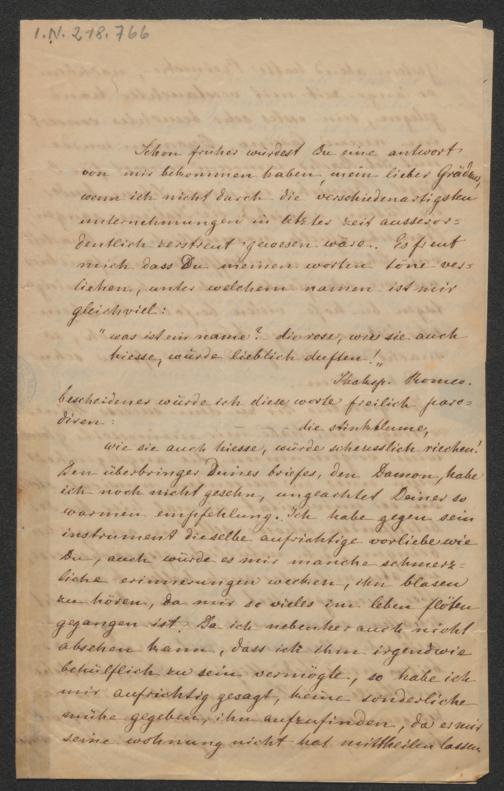 I.N. 218.766
Schon früher würdest Du eine antwort
von mir bekommen haben, mein lieber Grädener,
wenn ich nicht durch die verschiedenartigsten
unternehmungen in letzter zeit ausseror-
dentlich zerstreut gewesen wäre. Es freut
mich dass Du meinen worten töne ver-
liehen, unter welchem namen ist mir
gleichviel:
"was ist ein name? die rose, wie sie auch
hiesse, würde lieblich duften!"
Shaksp. Romeo.
bescheidner würde ich diese worte freilich paro-
diren: die stinkblume,
wie sie auch hiesse, würde scheusslich riechen!
Den überbringer Deines briefes, den Damon, habe
ich noch nicht gesehn, ungeachtet Deiner so
warmen empfehlung. Ich habe gegen sein
instrument dieselbe aufrichtige vorliebe wie
Du, auch würde es mir manche schmerz-
liche erinnerungen wecken, ihn blasen
zu hören, da mir so vieles im leben flöten
gegangen ist. Da ich nebenher auch nicht
absehen kann, dass ich ihm irgendwie
behülflich zu sein vermögte, so habe ich
mir aufrichtig gesagt, keine sonderliche
mühe gegeben, ihn aufzufinden, da er mir
seine wohnung nicht hat mittheilen lassen